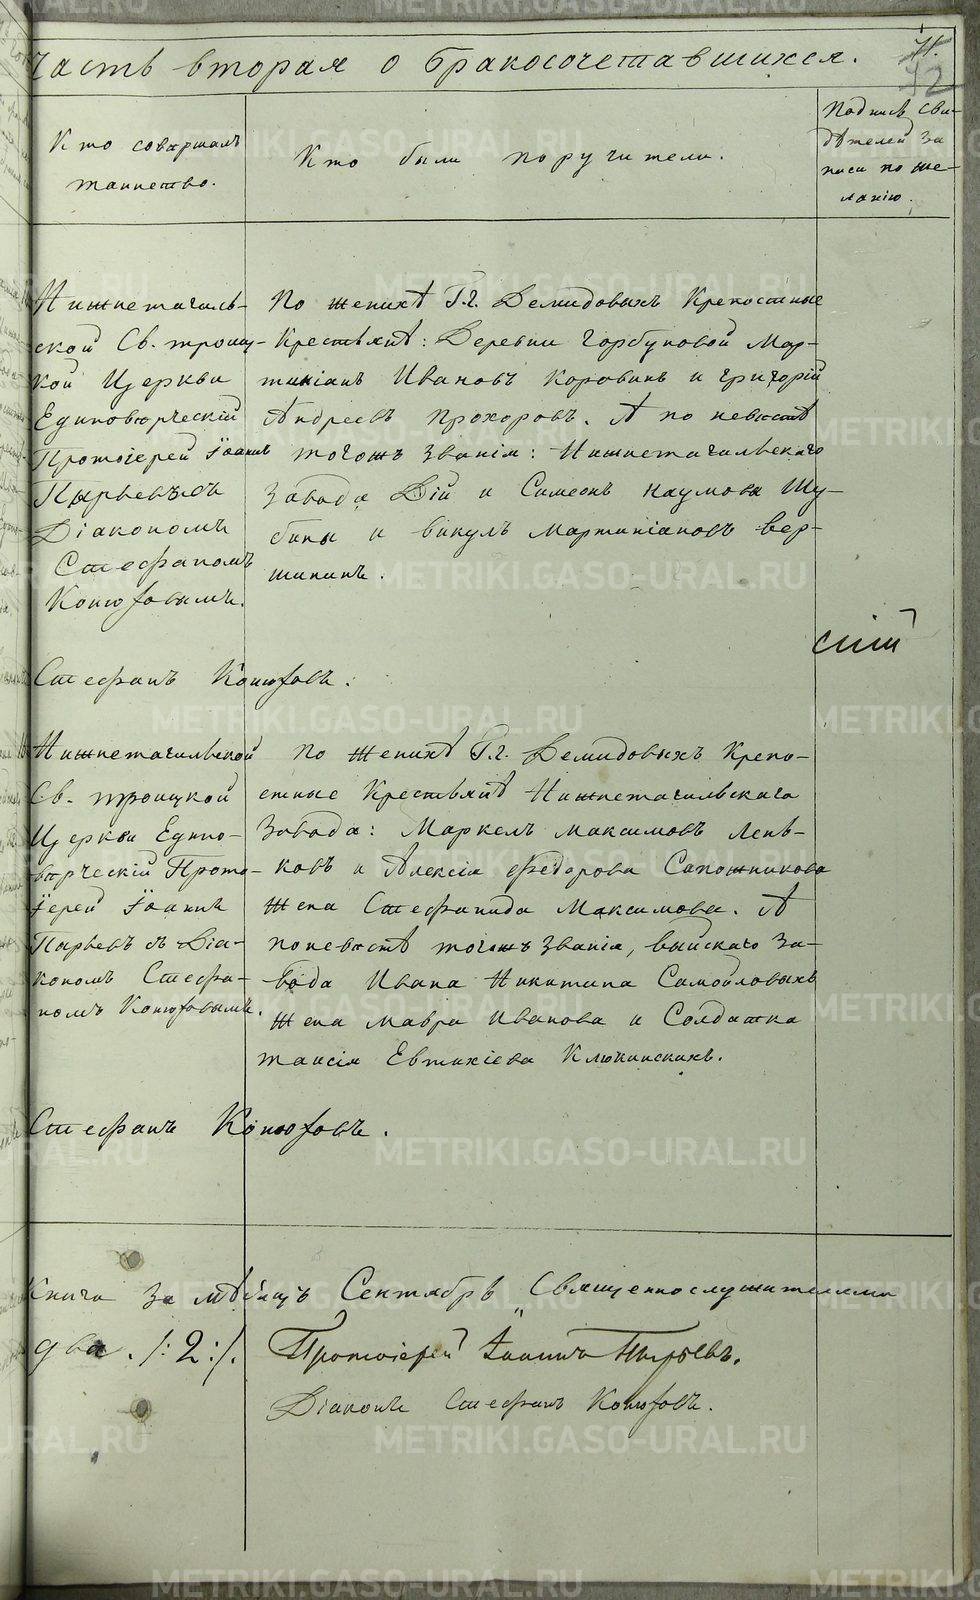 Часть вторая о бракосочетавшихся.
42
Кто совершалъ
таинство.
Кто были поручители.
Подпись сви-
дѣтелей за
писи по же-
ланію.
Нижнетагиль-
ской Св. троиц-
кой Церкви
Единовѣрческій
Протоіерей Іоаннъ
Пырьевъ съ
Діакономъ
Стефаномъ
Конюховымъ.
По женихѣ Г.г. Демидовыхъ Крепостные
Крестьянѣ: Деревни Горбуновой Мар-
тиніанъ Ивановъ Коровинъ и григорій
Андреевъ Прохоровъ. А по невѣстѣ
тогожъ званія: Нижнетагильскаго
Завода Дій и Симеонъ Наумовы Шу-
бины и викулъ Мартиніановъ вер-
шининъ.
Стефанъ Конюховъ.
Нижнетагильской
Св. троицкой
Церкви Едино-
вѣрческій Прото-
Іерей Іоаннъ
Пырьевъ съ Діа-
кономъ Стефа-
номъ Конюховымъ.
По женихѣ Г.г. Демидовыхъ Крепо-
стные Крестьянѣ Нижнетагильскаго
Завода: Маркелъ Максимовъ
и Алексія Федорова Сапожникова
Жена Стефанида Максимова. А
по невѣстѣ тогожъ званія, выйскаго за-
вода Ивана Никитина Самойловыхъ
Жена мавра Иванова и Солдатка
таисія Евтихіева Клюкинскихъ.
Стефанъ Конюховъ.
Книга за мѣсяцъ Сентябрь Священнослужителями
два. /:2:/. Протоіерей Іоаннъ Пырьевъ.
Діаконъ Стефанъ Конюховъ.
METRIKI.GASO-URAL.RU